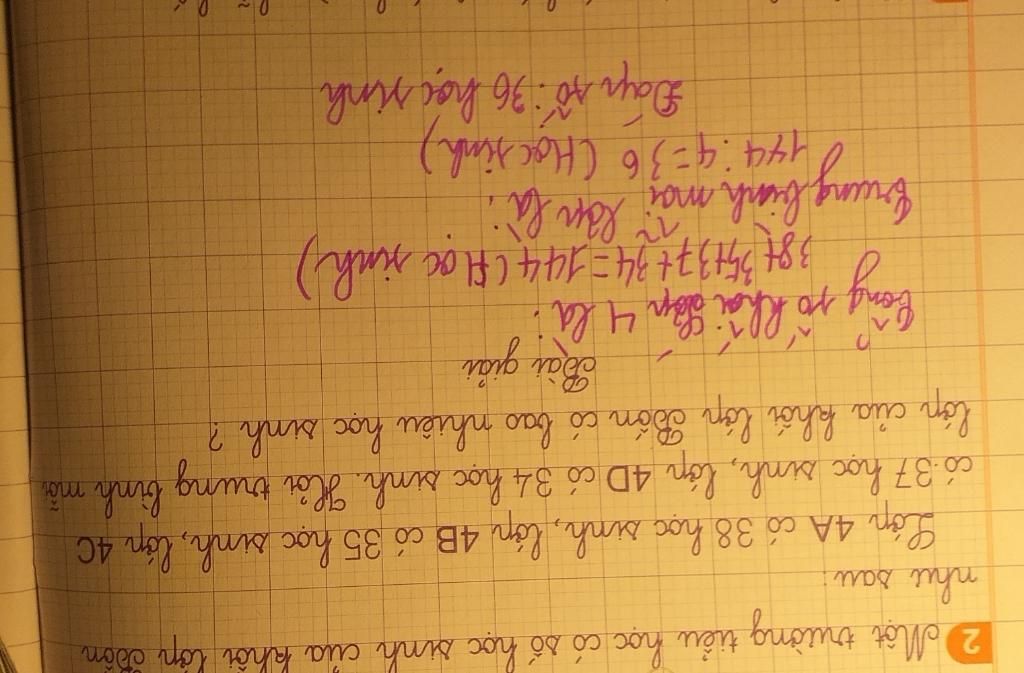 2 Một trường tiểu học có số học sinh của khối lớp Bốn
như sau:
Lớp 4A có 38 học sinh, lớp 4B có 35 học sinh, lớp 4C
có 37 học sinh, lớp 4D có 34 học sinh. Hỏi trung bình mỗi
lớp của khối lớp Bốn có bao nhiêu học sinh?
Bài giải
Tổng số khối lớp 4 là:
38+35+37+34=144 (Học sinh)
Trung bình mỗi lớp là:
144:4=36 (Học sinh)
Đáp số: 36 học sinh